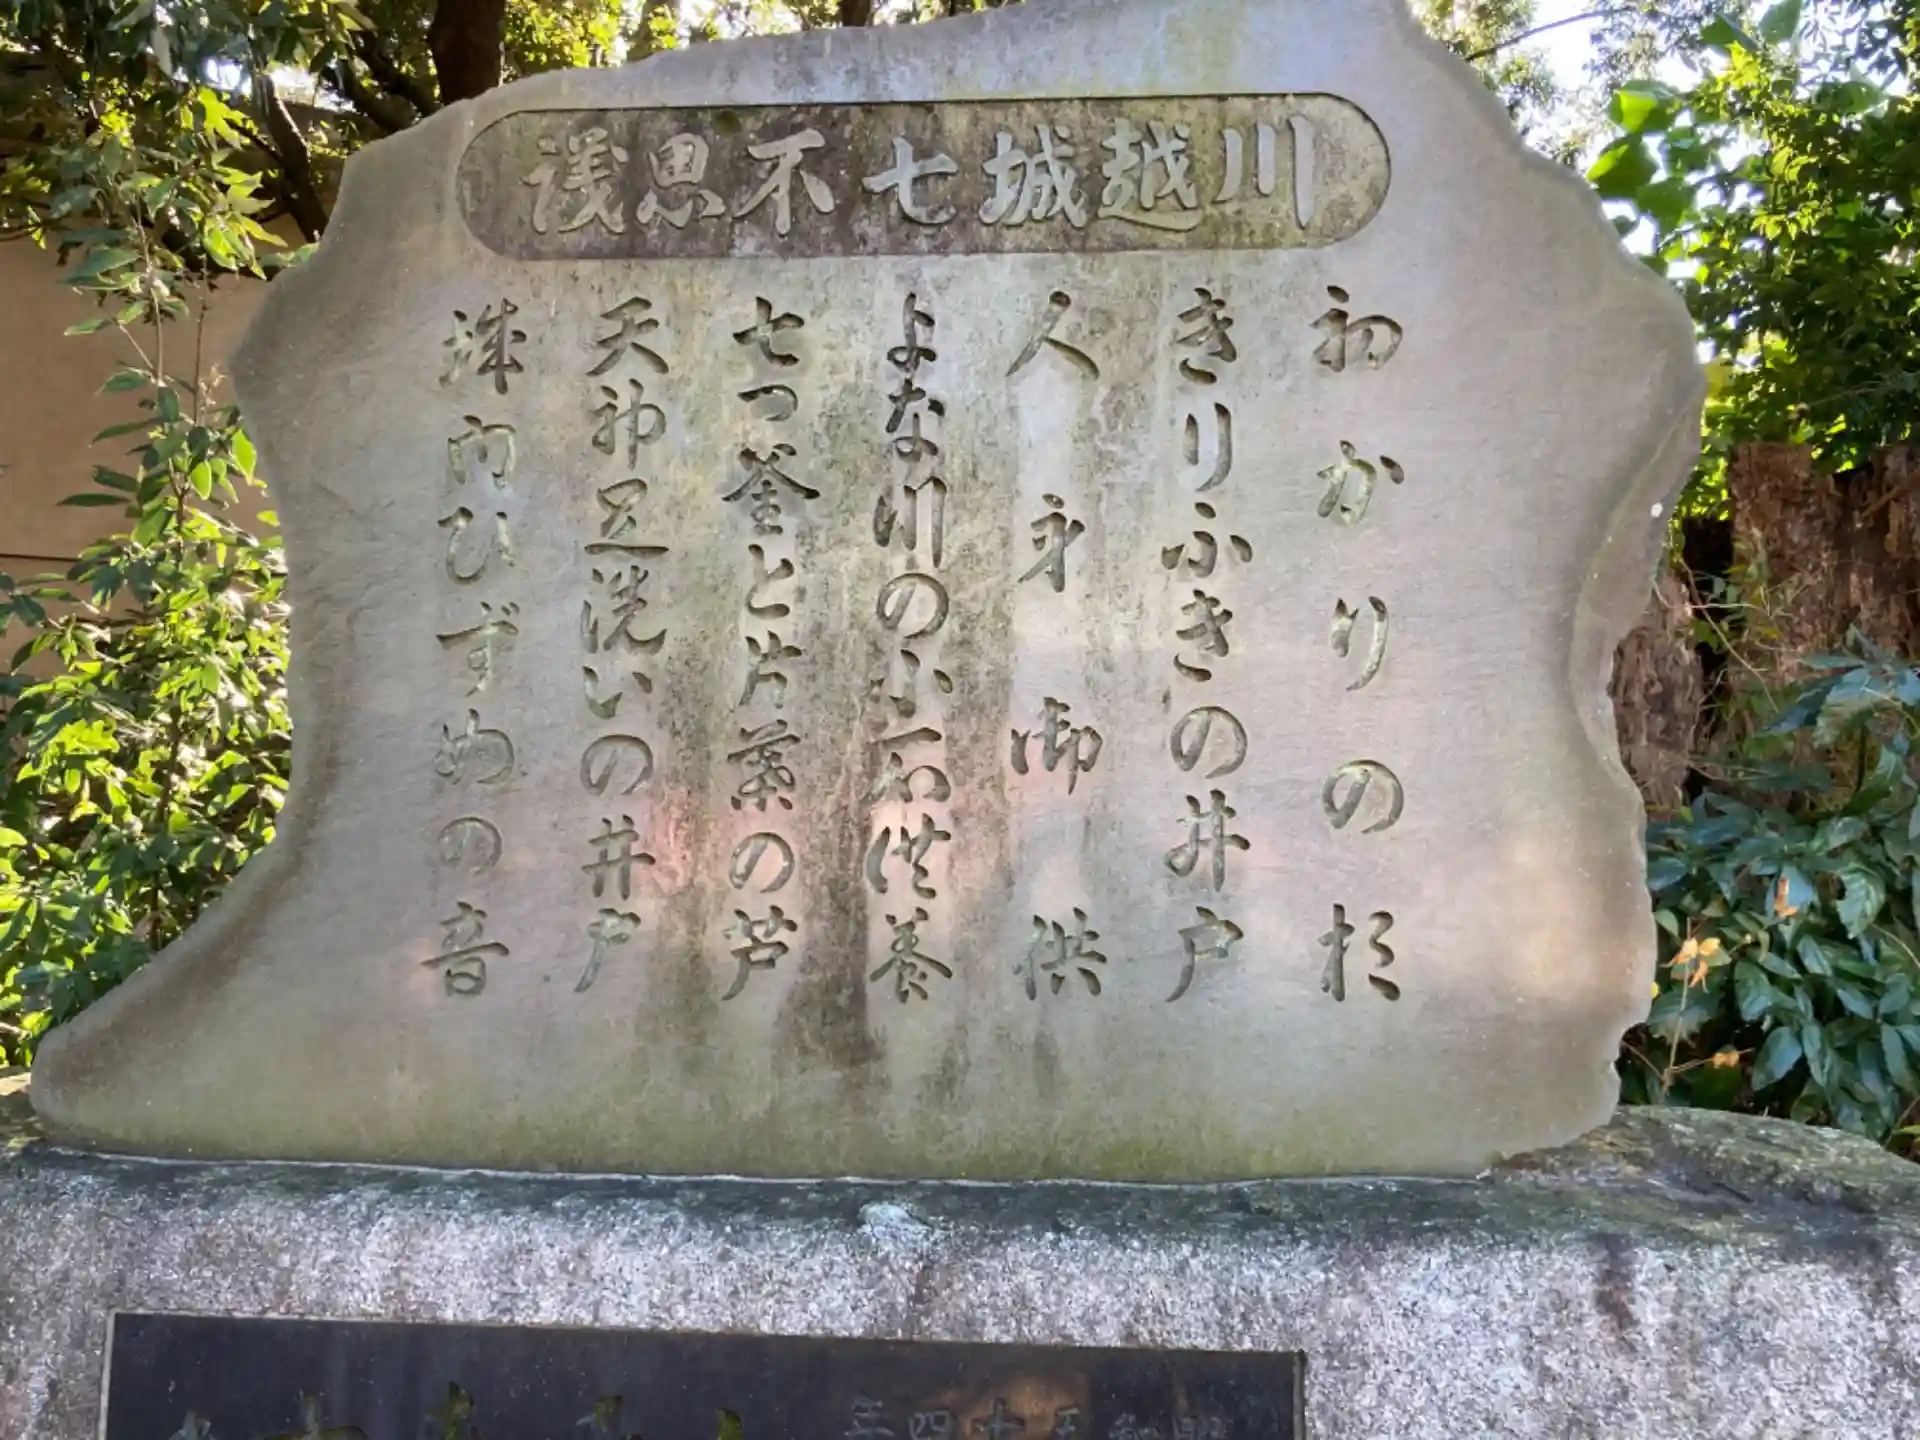 川越城七不思議
初かりの杉
きりふきの井戸
人身御供
よな川の小石供養
七つ釜と片葉の芦
天神足洗いの井戸
城内ひずめの音
昭和五十四年